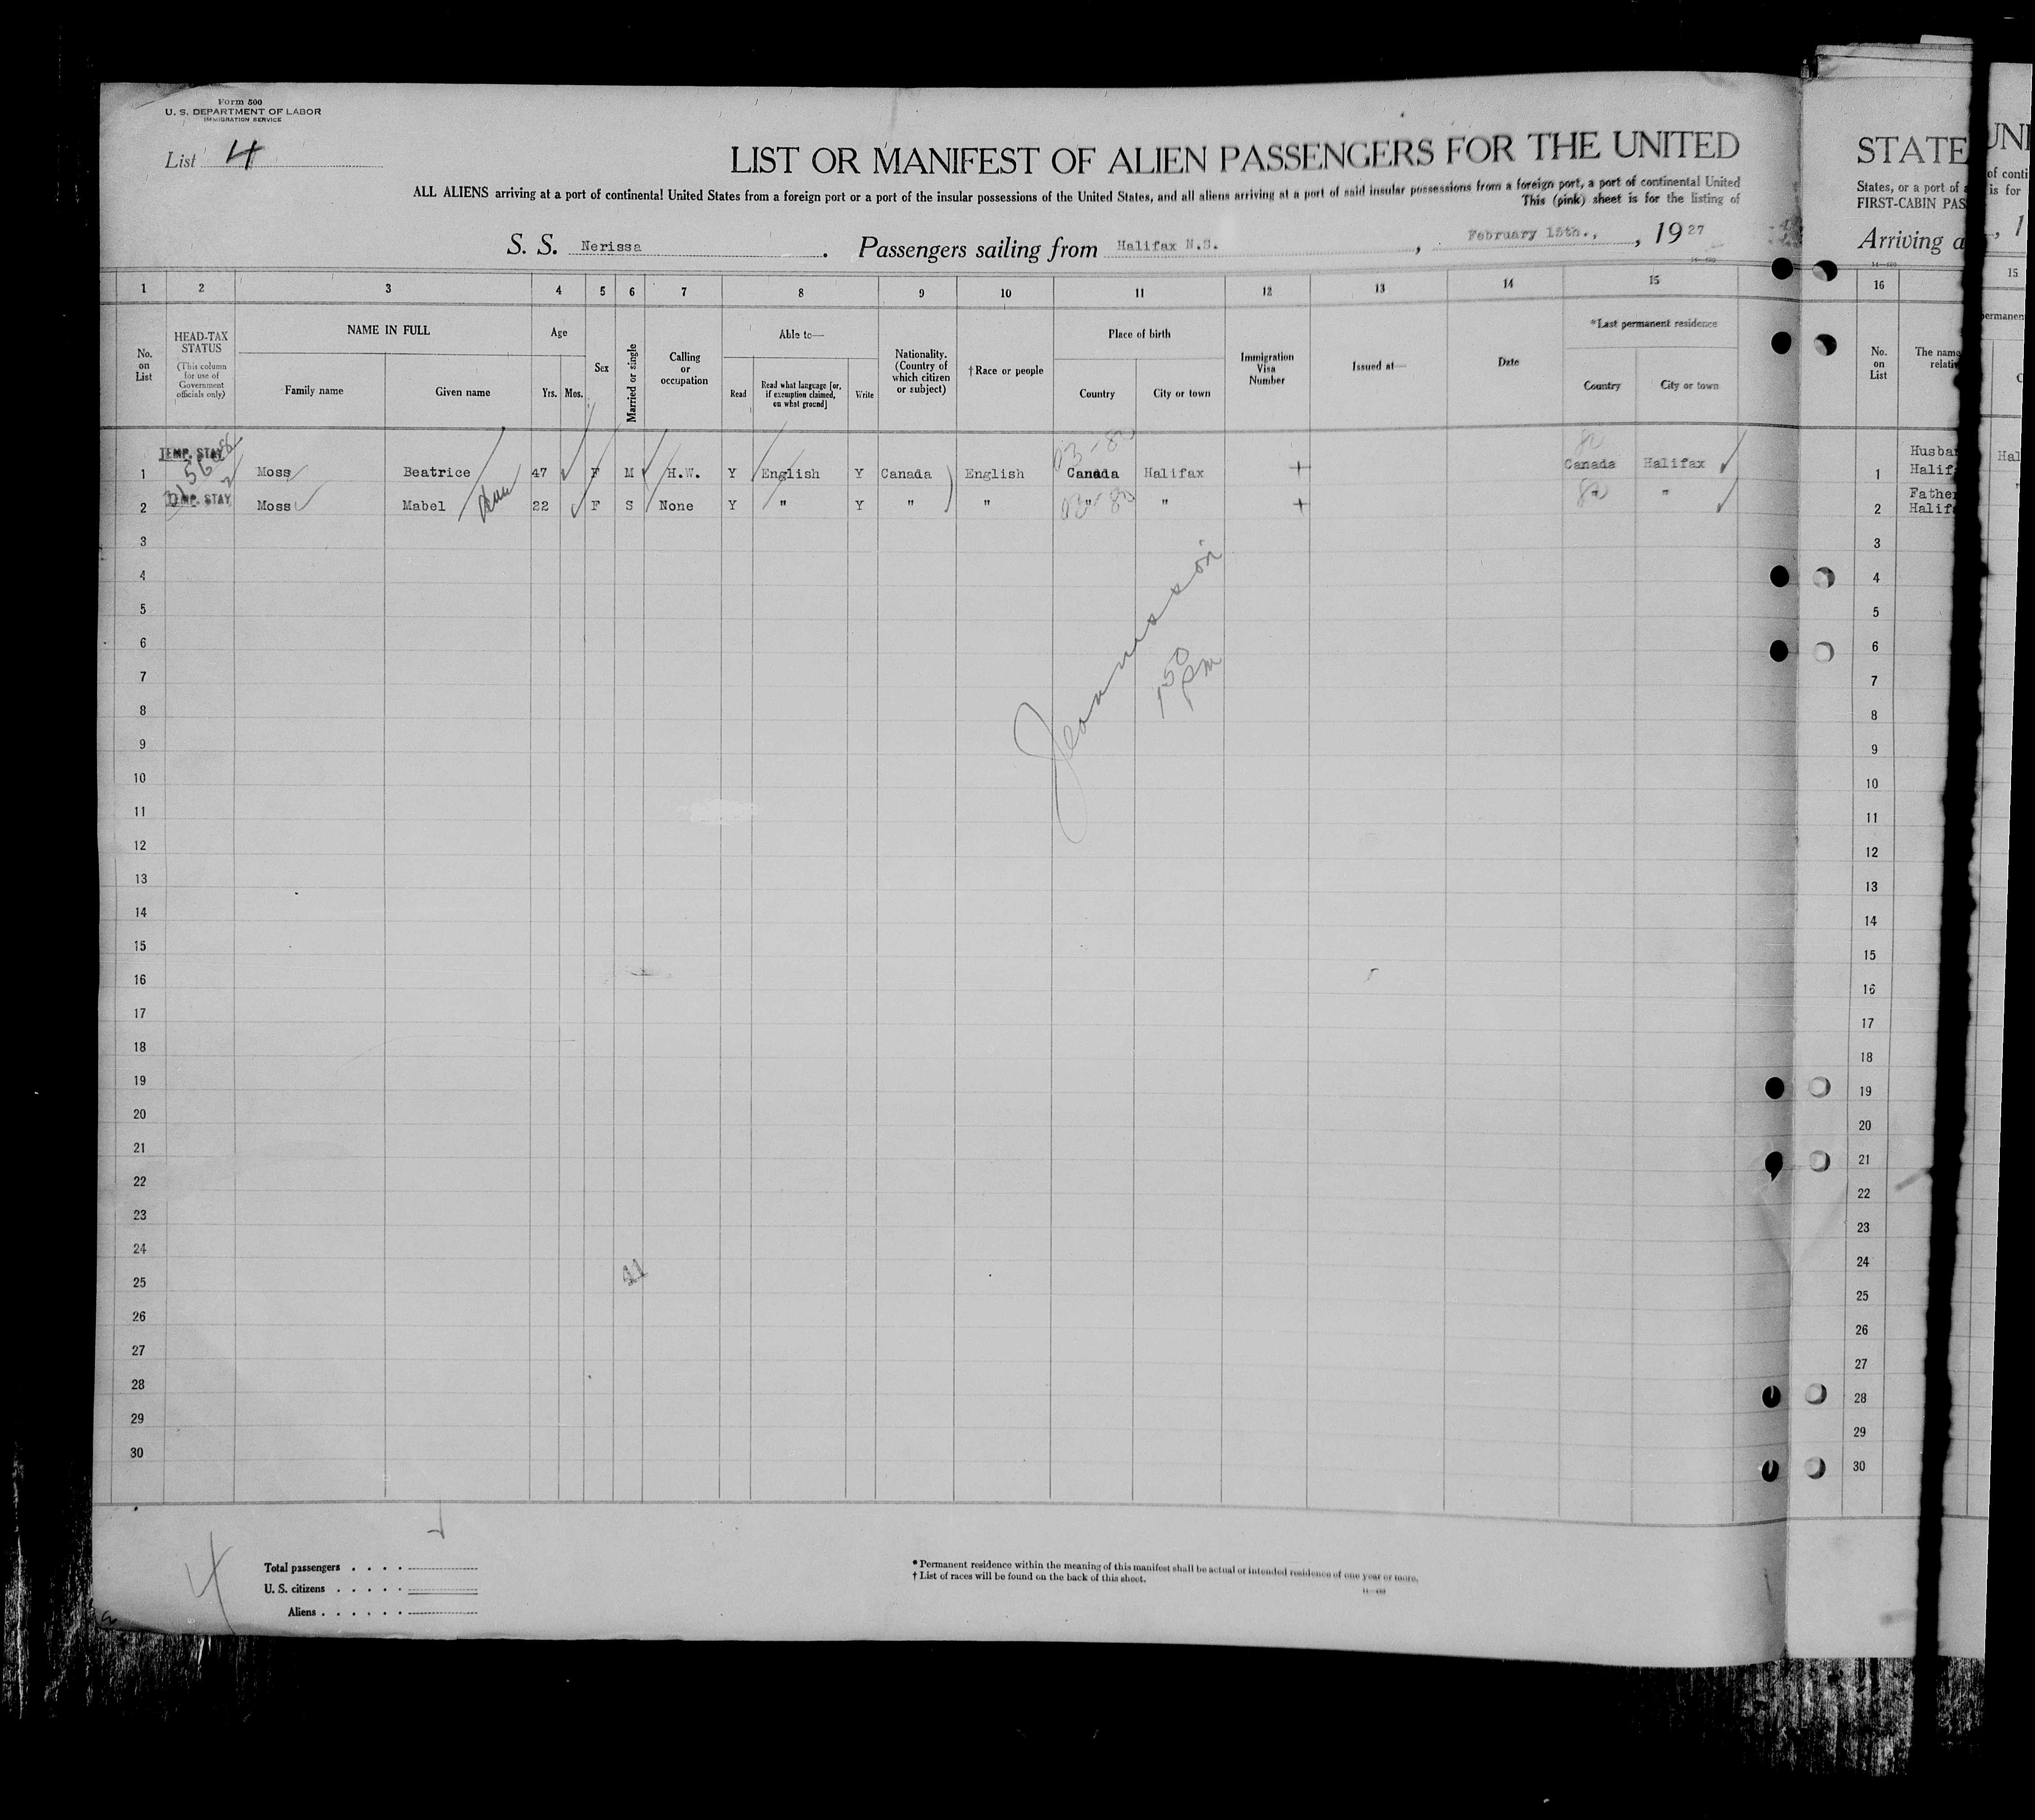 Form 500
U. S. DEPARTMENT OF LABOR
IMMIGRATION SERVICE
List 4
LIST OR MANIFEST OF ALIEN PASSENGERS FOR THE UNITED
ALL ALIENS arriving at a port of continental United States from a foreign port or a port of the insular possessions of the United States, and all aliens arriving at a port of said insular possessions from a foreign port, a port of continental United
This (pink) sheet is for the listing of
S. S. Nerissa. Passengers sailing from Halifax N.S., February 15th., , 1927
1 2 3 4 5 6 7 8 9 10 11 12 13 14 15
No. on List
HEAD-TAX STATUS
(This column for use of Government officials only)
NAME IN FULL
Family name Given name
Age
Yrs. Mos.
Sex
Married or single
Calling or occupation
Able to—
Read
Read what language [or, if exemption claimed, on what ground]
Write
Nationality. (Country of which citizen or subject)
† Race or people
Place of birth
Country City or town
Immigration Visa Number
Issued at—
Date
*Last permanent residence
Country City or town
TEMP. STAY
1 Moss Beatrice 47 F M H.W. Y English Y Canada English Canada Halifax + Canada Halifax
TEMP. STAY
2 Moss Mabel 22 F S None Y " Y " " " " + "
03-80
03-80
3
4
5
6
7
8
9
10
11
12
13
14
15
16
17
18
19
20
21
22
23
24
25
26
27
28
29
30
1 50 pm
41
4
Total passengers . . . .
U. S. citizens . . . . .
Aliens . . . . . .
* Permanent residence within the meaning of this manifest shall be actual or intended residence of one year or more.
† List of races will be found on the back of this sheet.
STATE
States, or a port of
FIRST-CABIN PAS
Arriving a
16
No. on List
The name
relativ
1 Husba
Halif
2 Father
Halif
3
4
5
6
7
8
9
10
11
12
13
14
15
16
17
18
19
20
21
22
23
24
25
26
27
28
29
30
UNI
of conti
is for
, 1
15
permanen
C
Hal
"